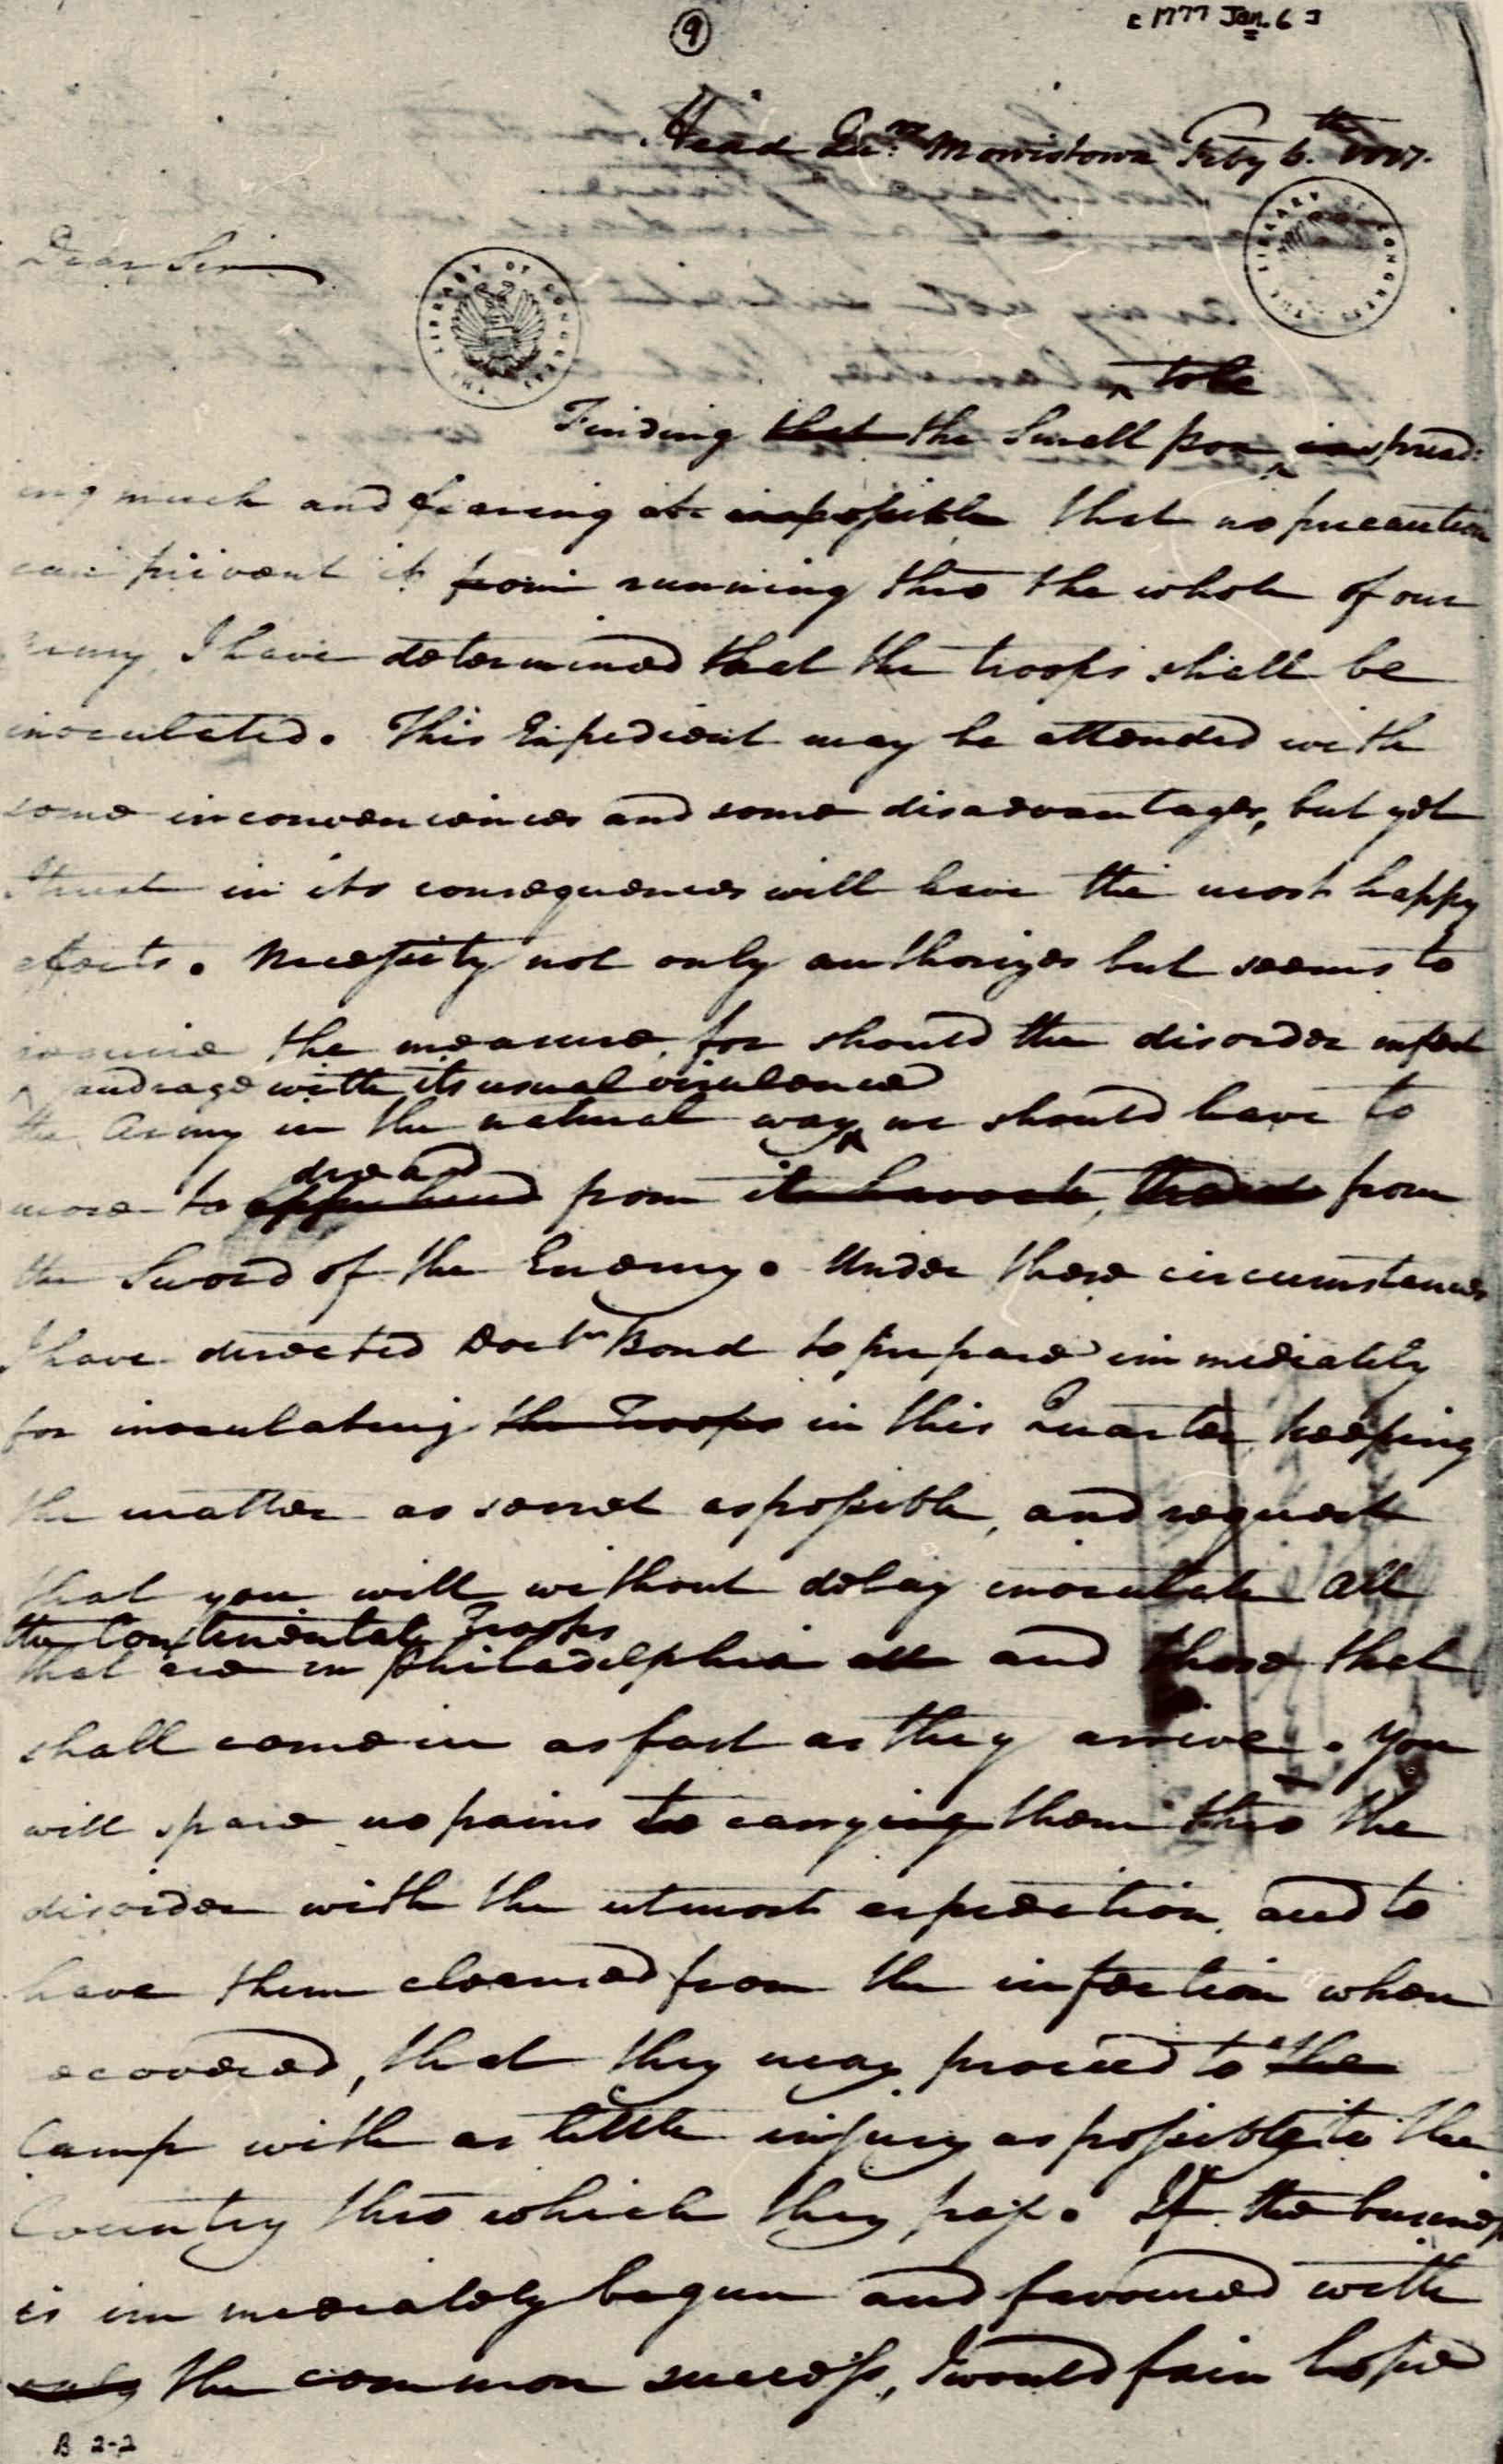 9
[1777 Jan. 6]
Head Qurs: Morristown Feby 6.th 1777.
Dear Sir
THE LIBRARY OF CONGRESS
THE LIBRARY OF CONGRESS
to be
Finding that the Small pox is spread:
ing much and fearing it impossible that no precaution
can prevent it from running thro the whole of our
army, I have determined that the troops shall be
inoculated. This Expedient may be attended with
some inconveniences and some disadvantages, but yet
I trust in its consequences will have the most happy
effects. Necessity not only authorizes but seems to
require the measure, for should the disorder infect
and rage with its usual virulence
the Army in the natural way we should have to
dread
more to apprehend from its havock, than from
the Sword of the Enemy. Under these circumstances
I have directed Doctr Bond to prepare immediately
for inoculating the Troops in this Quarter, keeping
the matter as secret as possible, and request
that you will without delay inoculate all
the Continental Troops
that are in Philadelphia all and those that
shall come in as fast as they arrive. You
will spare no pains to carrying them thro the
disorder with the utmost expedition, and to
have them cleansed from the infection when
recovered, that they may proceed to the
Camp with as little injury as possible to the
Country thro which they pass. If the business
is immediately begun and favoured with
the common success, I would fain hope
B 2-2